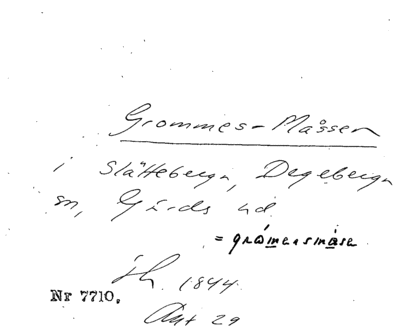 Grommes-Måssen
i Slätteberga, Degeberga
sn, Gärds hd.
= gråmensmåse
1844.
Nr 7710.
Ant 29